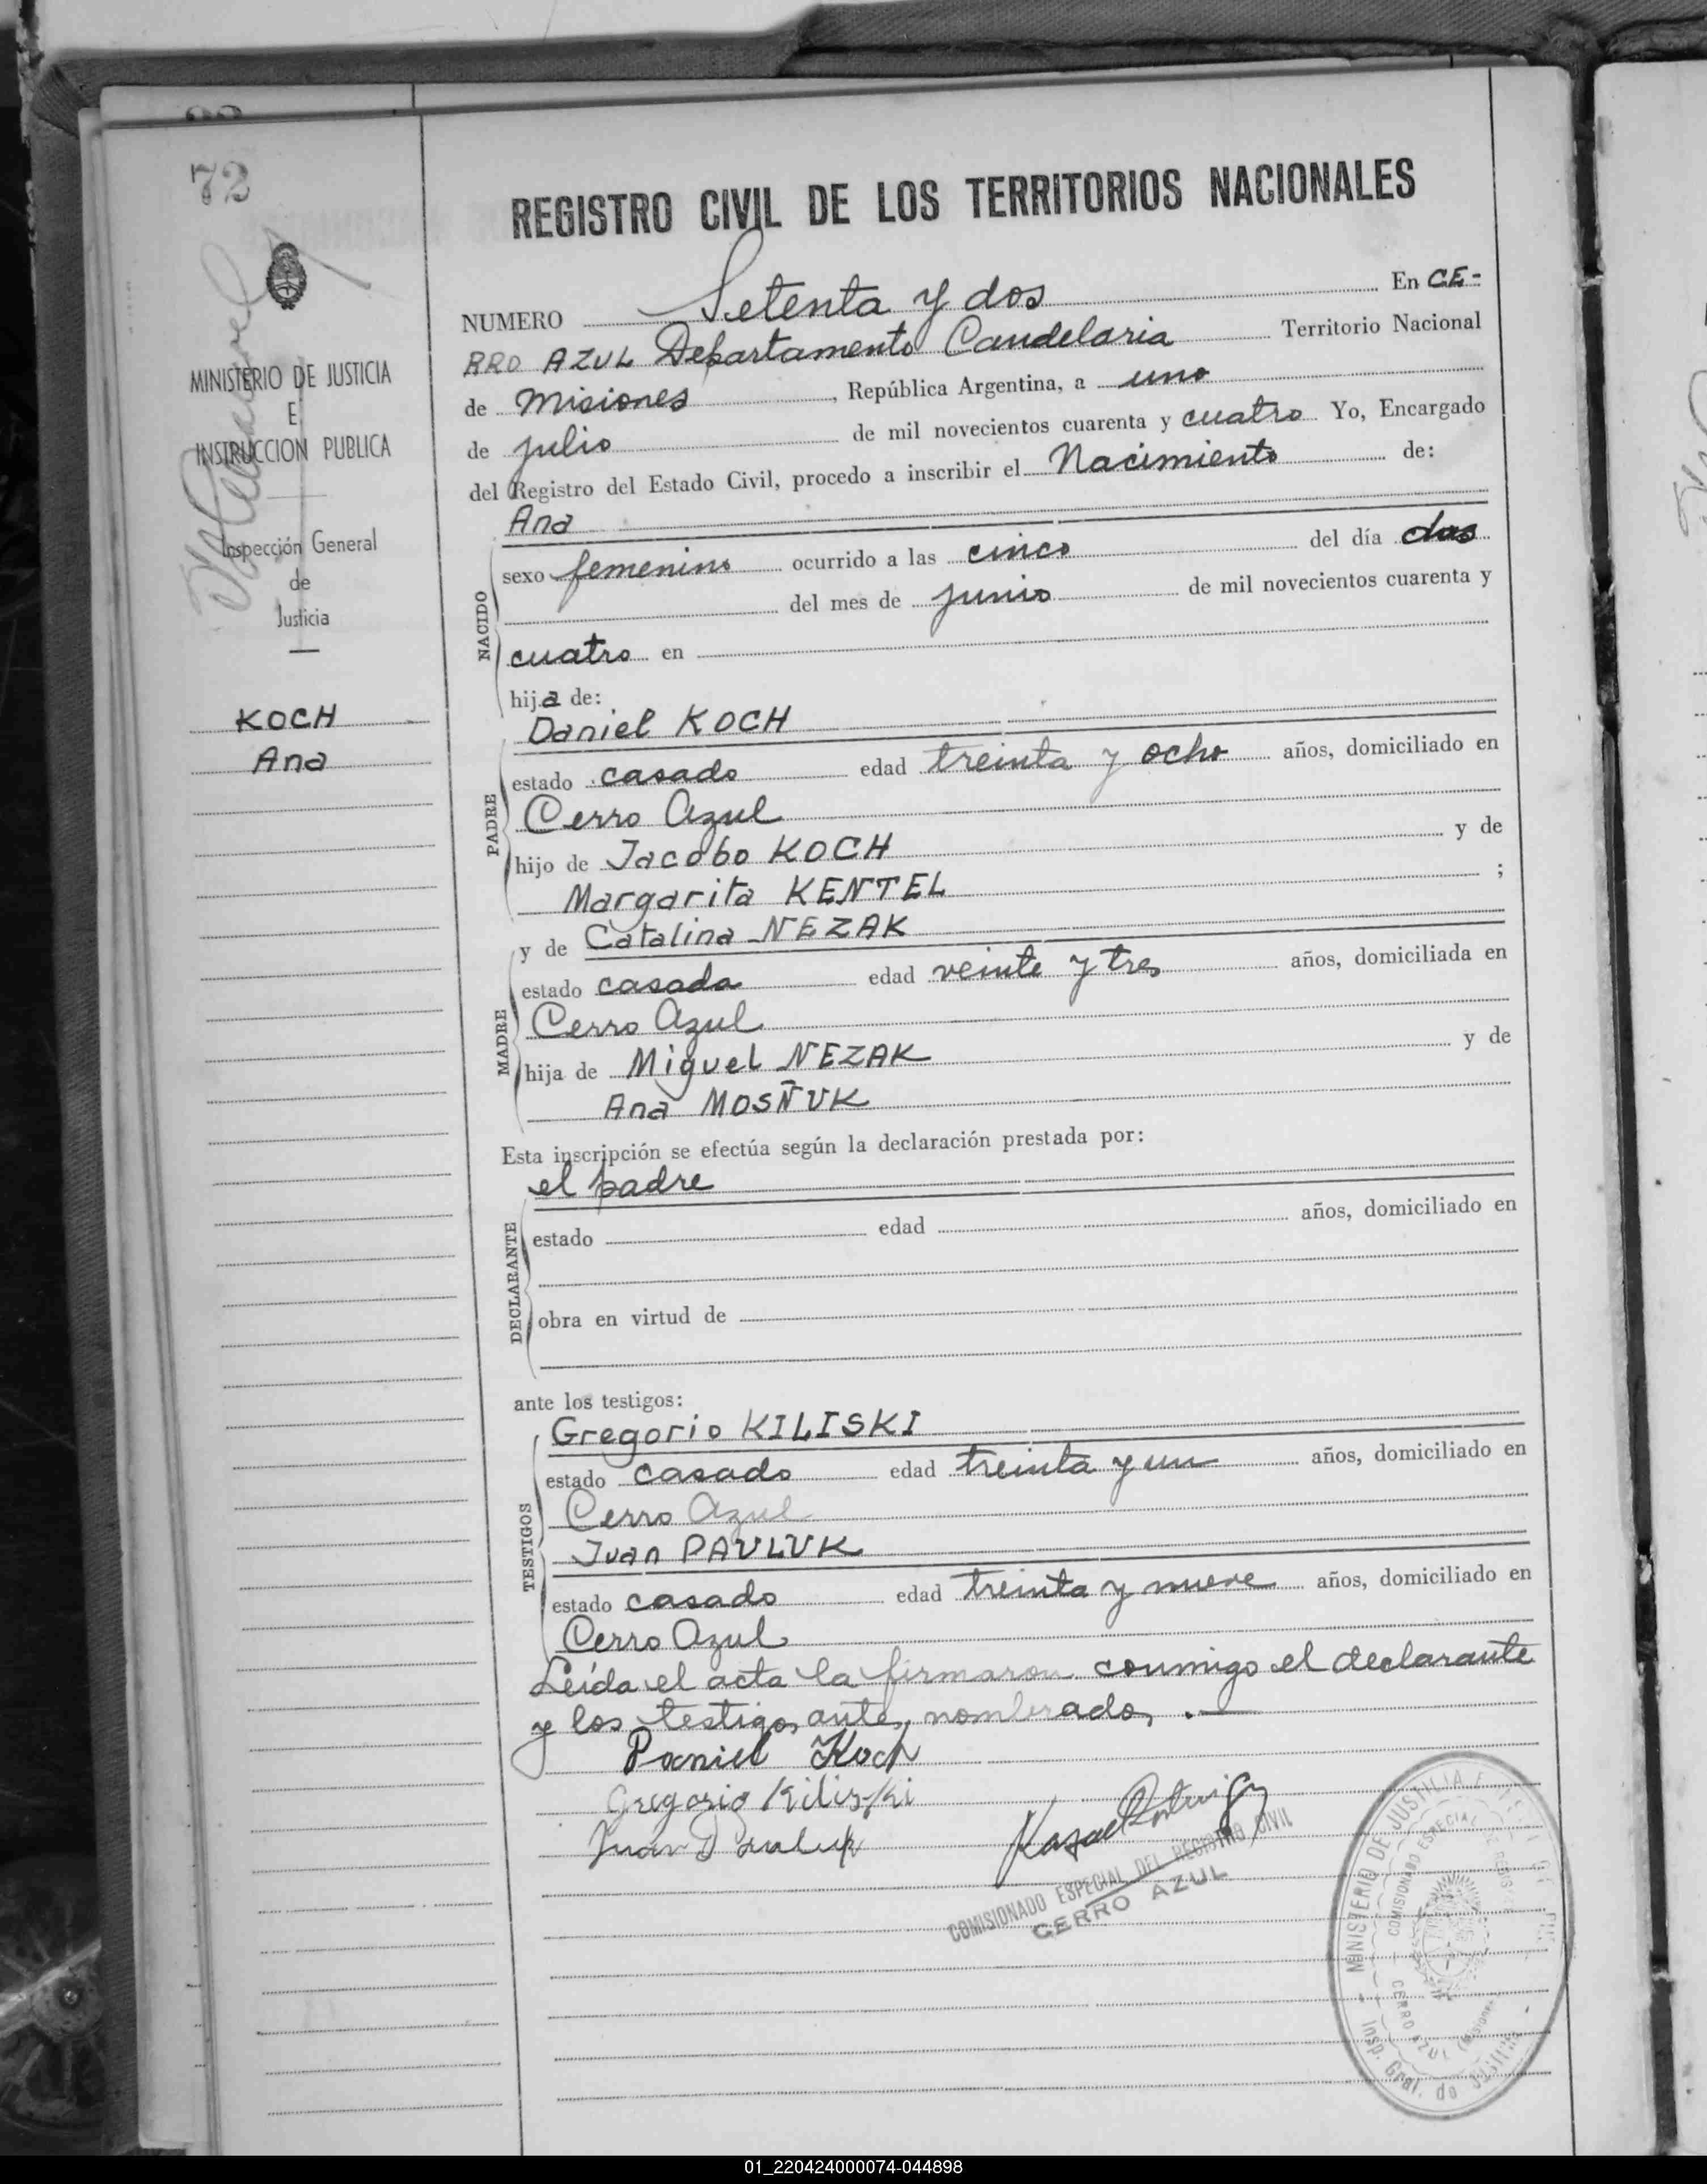 72
REGISTRO CIVIL DE LOS TERRITORIOS NACIONALES
NUMERO Setenta y dos En CE-
RRO AZUL Departamento Candelaria Territorio Nacional
de Misiones, República Argentina, a uno
de julio de mil novecientos cuarenta y cuatro Yo, Encargado
del Registro del Estado Civil, procedo a inscribir el Nacimiento de:
Ana
NACIDO
sexo femenino ocurrido a las cinco del día dos
del mes de junio de mil novecientos cuarenta y
cuatro en
hija de:
Daniel KOCH
PADRE
estado casado edad treinta y ocho años, domiciliado en
Cerro Azul
hijo de Jacobo KOCH y de
Margarita KENTEL ;
y de Catalina NEZAK
MADRE
estado casada edad veinte y tres años, domiciliada en
Cerro Azul
hija de Miguel NEZAK y de
Ana MOSÑUK
Esta inscripción se efectúa según la declaración prestada por:
el padre
DECLARANTE
estado edad años, domiciliado en
obra en virtud de
ante los testigos:
Gregorio KILISKI
TESTIGOS
estado casado edad treinta y un años, domiciliado en
Cerro Azul
Juan PAULUK
estado casado edad treinta y nueve años, domiciliado en
Cerro Azul
Leída el acta la firmaron conmigo el declarante
y los testigos antes nombrados.—
Daniel Koch
Gregorio Kiliski
Juan
COMISIONADO ESPECIAL DEL REGISTRO CIVIL
CERRO AZUL
MINISTERIO DE JUSTICIA E
COMISIONADO ESPECIAL DE REGIS
CERRO AZUL (Misiones)
Insp. Gral. de Justicia
MINISTERIO DE JUSTICIA
E
INSTRUCCION PUBLICA
Inspección General
de
Justicia
KOCH
Ana
01_220424000074-044898